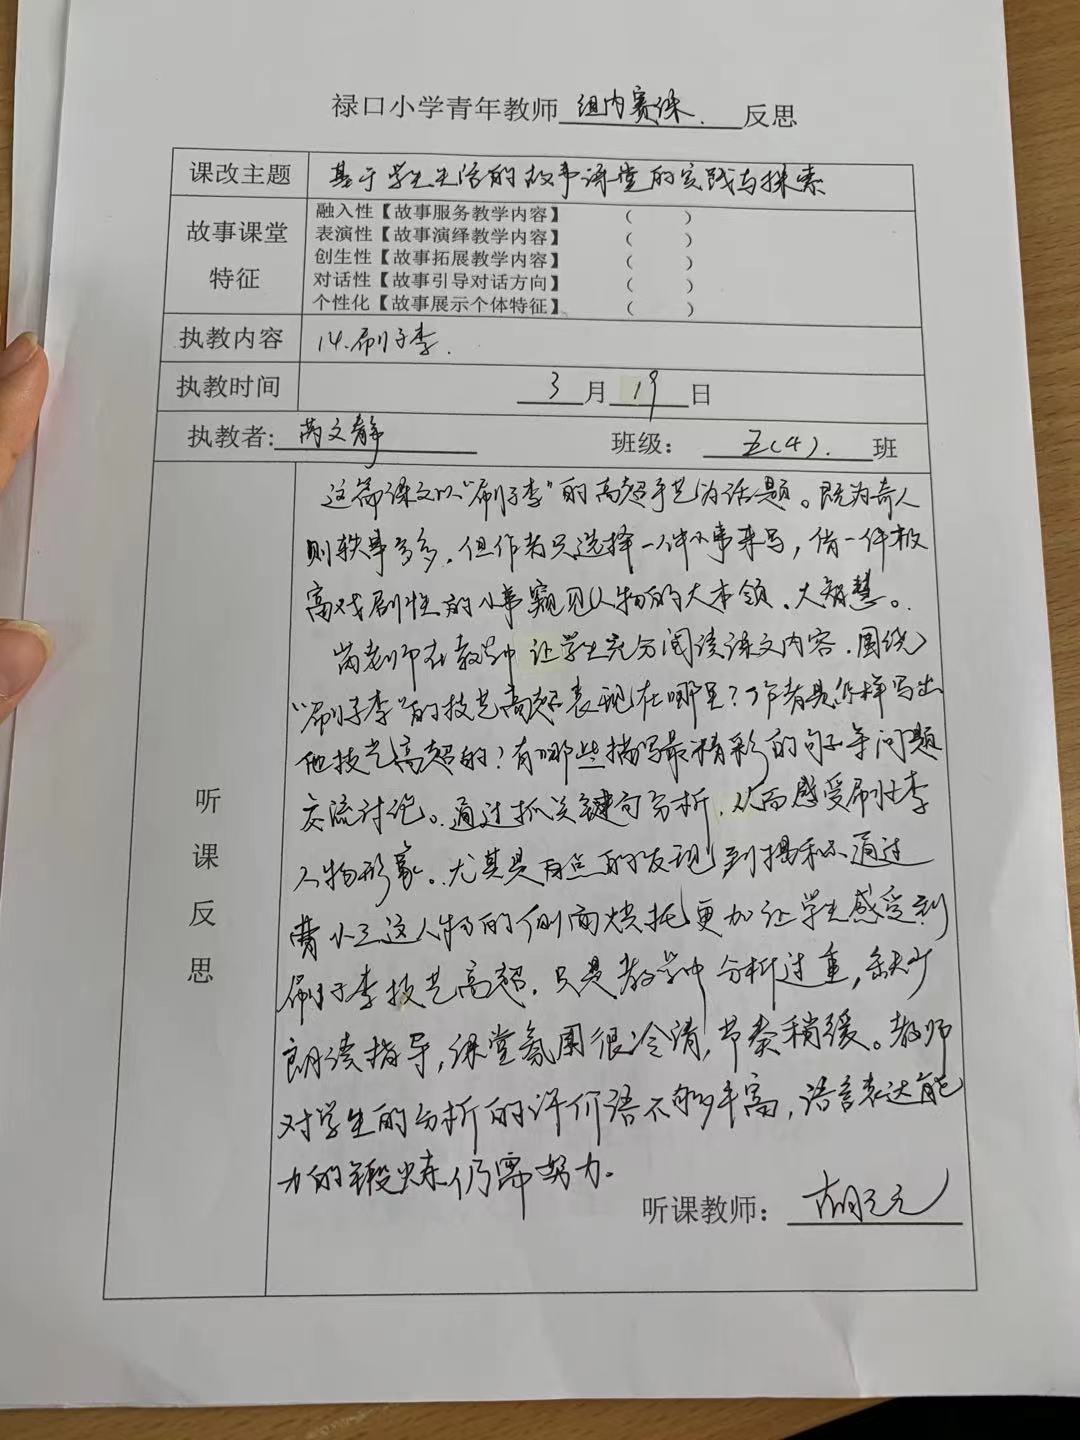 禄口小学青年教师组内赛课.反思
课改主题 基于学生生活的故事课堂的实践与探索
故事课堂特征
融入性【故事服务教学内容】 （ ）
表演性【故事演绎教学内容】 （ ）
创生性【故事拓展教学内容】 （ ）
对话性【故事引导对话方向】 （ ）
个性化【故事展示个体特征】 （ ）
执教内容 14.刷子李.
执教时间 3月19日
执教者: 芮文静 班级： 五(4). 班
听课反思
这篇课文以“刷子李”的高超手艺为话题。既为奇人
则轶事多多.但作者只选择一件小事来写，借一件极
富戏剧性的小事窥见人物的大本领.大智慧。
芮老师在教学中让学生充分阅读课文内容.围绕
“刷子李”的技艺高超表现在哪里？作者是怎样写出
他技艺高超的？有哪些描写最精彩的句子等问题
交流讨论。通过抓关键句分析.从而感受刷子李
人物形象。尤其是白点的发现到揭秘通过
曹小三这人物的侧面烘托更加让学生感受到
刷子李技艺高超.只是教学中分析过重，缺少
朗读指导，课堂氛围很冷清，节奏稍缓。教师
对学生的分析的评价语不够丰富，语言表达能
力的锻炼仍需努力。
听课教师：